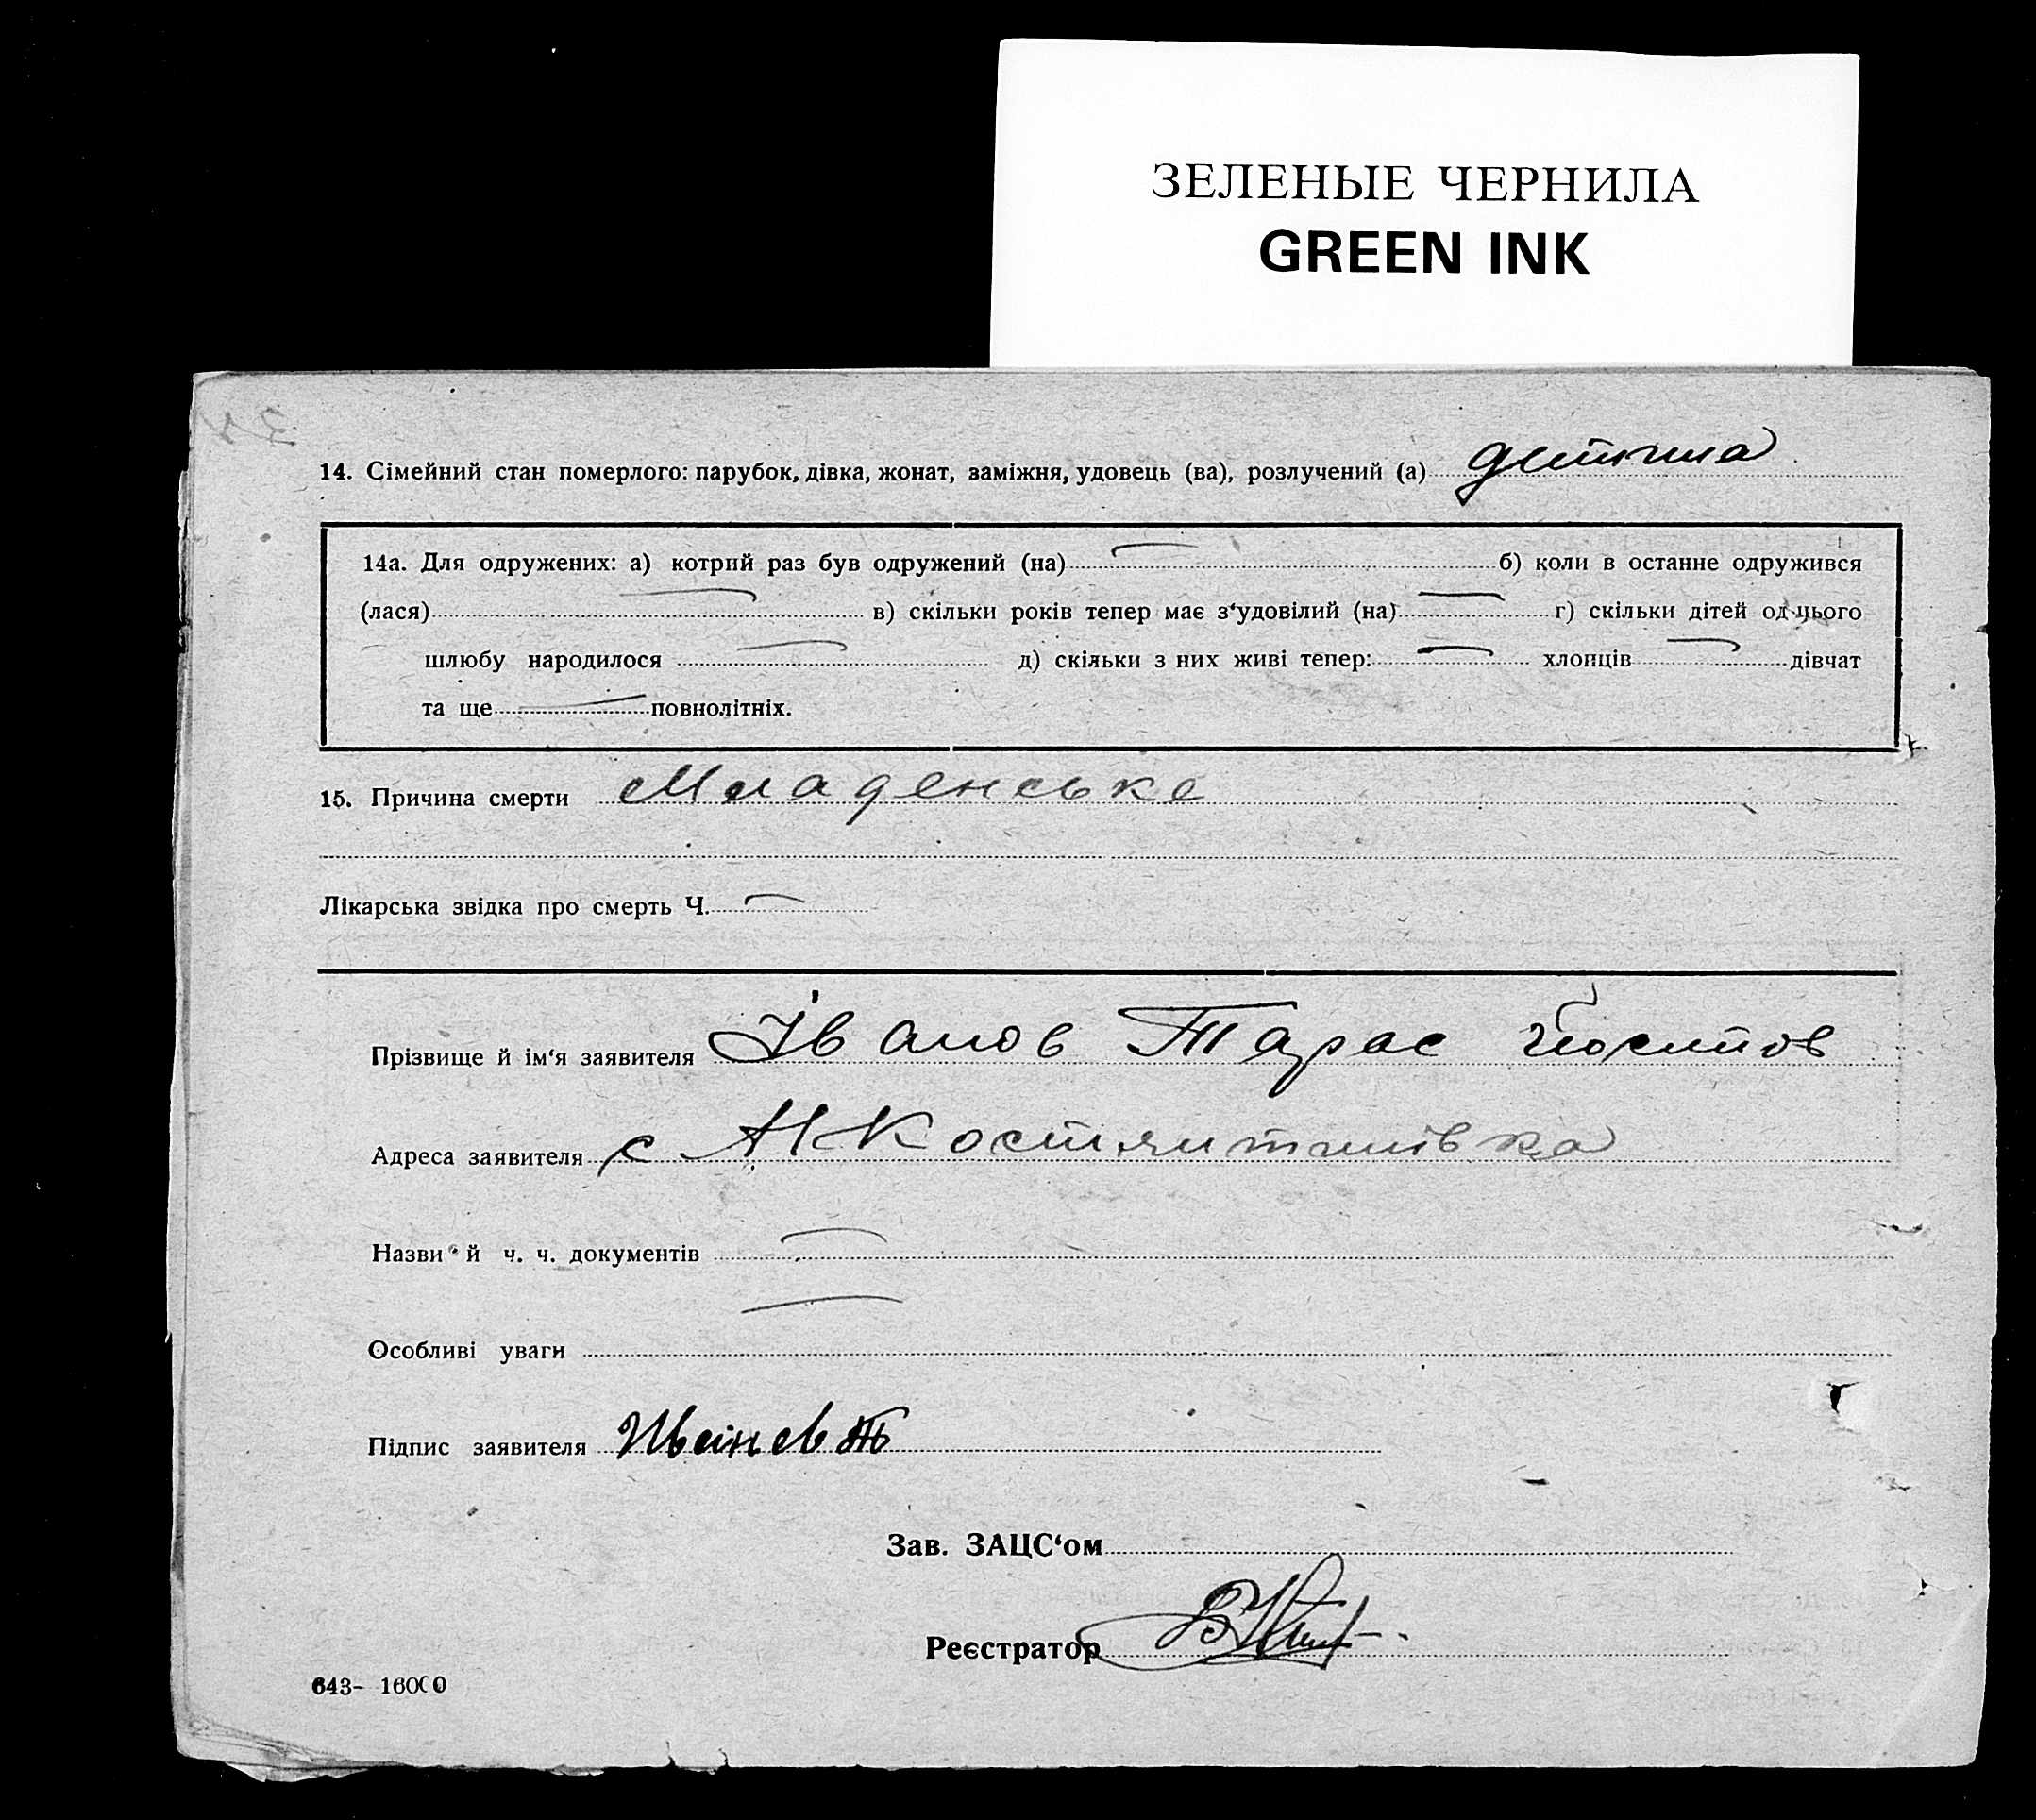 ЗЕЛЕНЫЕ ЧЕРНИЛА
GREEN INK
14. Сімейний стан померлого: парубок, дівка, жонат, заміжня, удовець (ва), розлучений (а) дитина
14а. Для одружених: а) котрий раз був одружений (на) б) коли в останне одружився
(лася) в) скільки років тепер має з‘удовілий (на) г) скільки дітей од цього
шлюбу народилося д) скільки з них живі тепер: хлопців дівчат
та ще повнолітніх.
15. Причина смерти Младенське
Лікарська звідка про смерть Ч.
Прізвище й ім‘я заявителя Іванов Тарас Йосипов
Адреса заявителя с Костянтинівка
Назви й ч. ч. документів
Особливі уваги
Підпис заявителя Иванов
Зав. ЗАЦС‘ом
Реєстратор
643- 16000